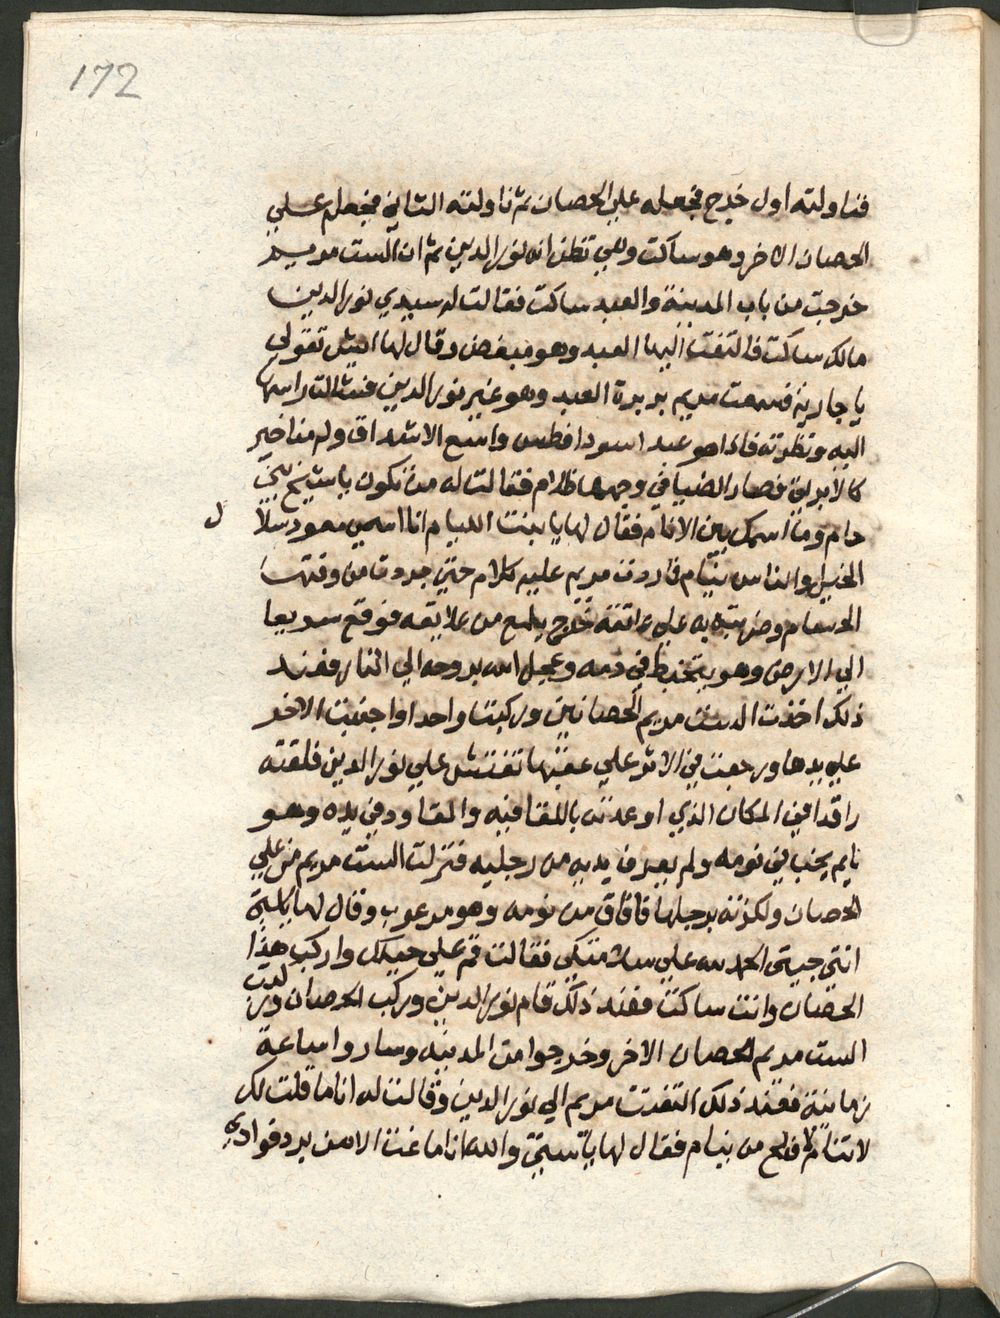 172
فناولته اول خرج فجعله علي الحصان ثم ناولته الثاني فجعلم علي
الحصان الاخر وهو ساكت وهي تظن انه نور الدين ثم ان الست مريم
خرجت من باب المدينة والعبد ساكت فقالت له سيدي نور الدين
مالك ساكت فالتفت اليها العبد وهو مبغض وقال لها ايش تقولي
يا جارية فسمعت مريم بربرة العبد وهو غير نور الدين فشالت راسها
اليه ونظرته فاذا هو عبد اسود افطس واسع الاشداق وله مناخير
كالابريق فصار الضيا في وجهها ظلام فقالت له من تكون يا شيخ بني
حام وما اسمك بين الانام فقال لها يا بنت الليام انا اسمي مسعود سلال
الخيل والناس نيام فما ردت مريم عليه كلام حتي جردت من وقتها
الحسام وضربته به علي عاتقه خرج يلمع من علايقه فوقع سريعا
الي الارض وهو يتخبط في دمه وعجل الله بروحه الي النار فعند
ذلك اخذت الست مريم الحصانين وركبت واحدا واجنبت الاخر
علي يدها ورجعت في الاثر علي عقبها تفتش علي نور الدين فلقته
راقدا في المكان الذي اوعدته باللقا فيه والمقاود في يده وهو
نايم يخب في نومه ولم يعرف يديه من رجليه فنزلت الست مريم من علي
الحصان ولكزته برجلها فافاق من نومه وهو مرعوب وقال لها يا ستي
انتي جيتي الحمد لله علي سلامتكي فقالت قم علي حيلك واركب هذا
الحصان وانت ساكت فعند ذلك قام نور الدين وركب الحصان وركبت
الست مريم الحصان الاخر وخرجوا من المدينه وساروا ساعة
زمانية فعند ذلك التفتت مريم الي نور الدين وقالت له انا ما قلت لك
لا تنام لا افلح من ينام فقال لها يا ستي والله انا ما نمت الا من برد فوادي